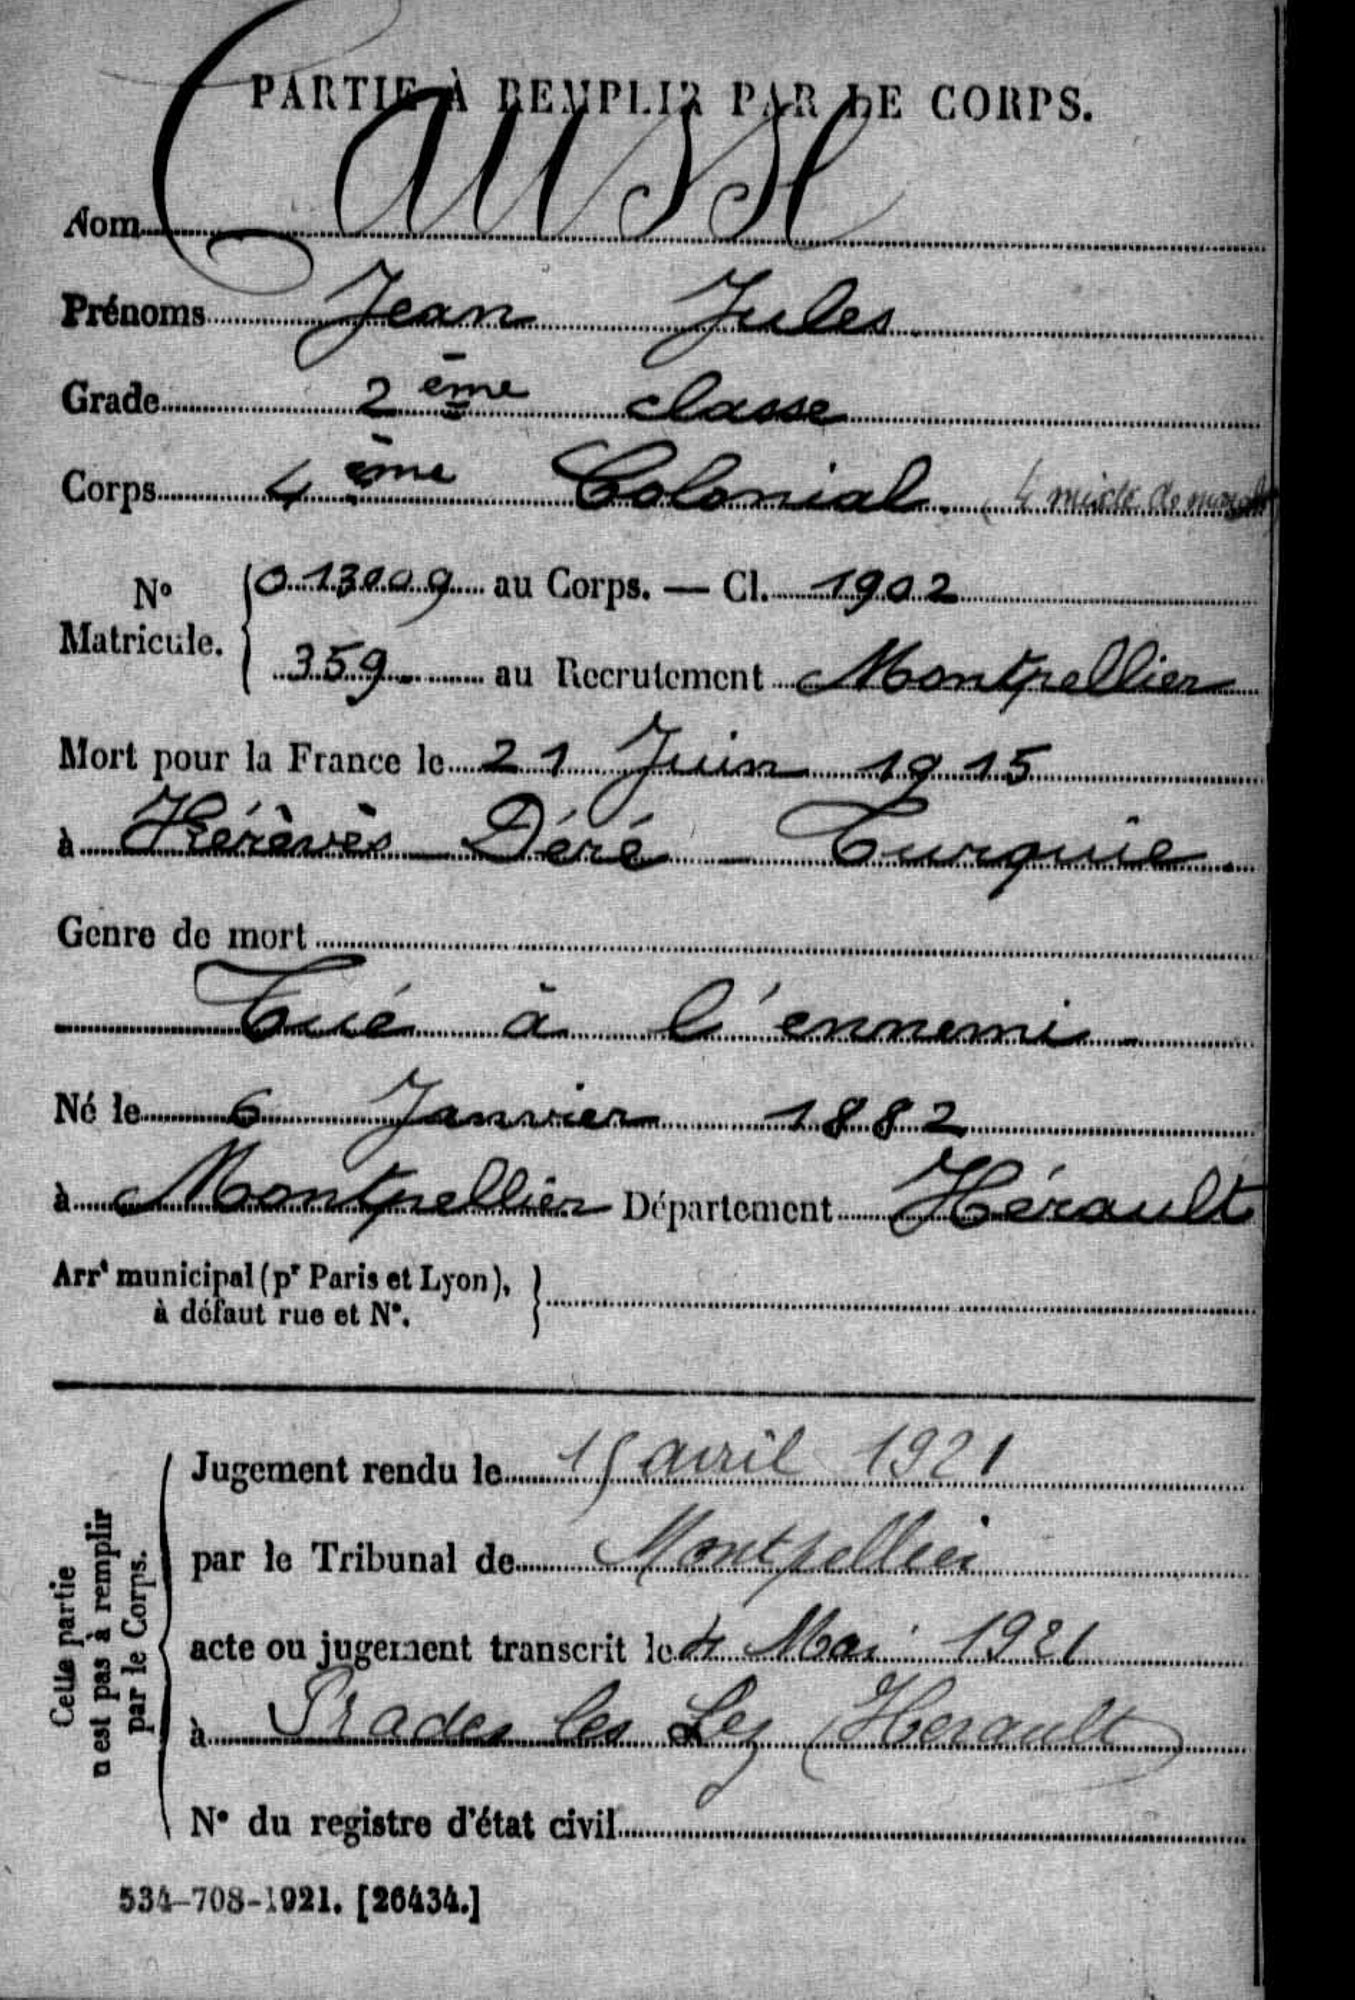 PARTIE À REMPLIR PAR LE CORPS.
Nom Causse
Prénoms Jean Jules
Grade 2 ème classe
Corps 4 ème Colonial. (4 mixte de
N° Matricule. { 013009 au Corps. — Cl. 1902
359 au Recrutement Montpellier
Mort pour la France le 21 Juin 1915
à Kérèvès Déré - Turquie.
Genre de mort
Tué à l'ennemi
Né le 6 Janvier 1882
à Montpellier Département Hérault
Arrt municipal (pr Paris et Lyon),
à défaut rue et N°.
Cette partie
n'est pas à remplir
par le Corps.
Jugement rendu le 15 avril 1921
par le Tribunal de Montpellier
acte ou jugement transcrit le 4 Mai 1921
à Prades les Lez (Herault)
N° du registre d'état civil
534-708-1921. [26434.]